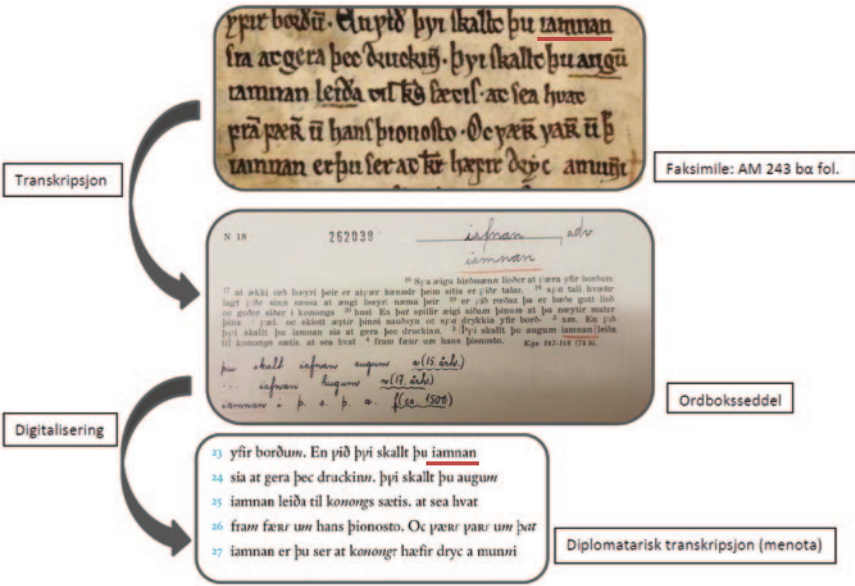 yfir borðū. En ꝩið þꝩi ſkallt þu iamnan
ſia at gera þec druckin̄. þꝩi ſkallt þu augū
iamnan leiða til kgſ ſætiſ. at ſea hvat
frā færʀ ū hanſ þionoſto. Oc ꝩærʀ ꝩarʀ ū þ̄
iamnan er þu ſer at kr hæfir dryc a mun̄i
Transkripsjon
Faksimile: AM 243 bα fol.
N 18 262038 iafnan, adv
iamnan
¹⁶ Sꝩa æigu hirðmænn lioðer at ꝩæra yfir borðum
¹⁷ at ækki orð hœyri þeir er atꝩær kænndr þeim sitia er ꝩiðr talar. ¹⁸ sꝩa tali hværr
lagt ꝩiðr sinn sæssa at ængi hœyri næma þeir ¹⁹ er ꝩið rœðas þa er bæðe gott lioð
oc goðer siðer i konongs ²⁰ husi En þat spillir æigi siðum þinum at þu nœytir matar
þins ¹ ꝩæl. oc skiott æptir þinni nauðsyn oc sꝩa drykkia yfir borð- ² um. En ꝩið
þꝩi skallt þu iamnan sia at gera þec druckinn. ³ Þꝩi skallt þu augum iamnan leiða
til konongs sætis. at sea hvat ⁴ fram færr um hans þionosto. Kgs 162-163 (74 b).
þu skalt iafnan augum a(15. årh.)
... iafnan hugum n(17. årh.)
iamnan i þ. s. þ. a. f(ca. 1500)
Ordboksseddel
Digitalisering
23 yfir borðum. En ꝩið þꝩi skallt þu iamnan
24 sia at gera þec druckinn. þꝩi skallt þu augum
25 iamnan leiða til konongs sætis. at sea hvat
26 fram færʀ um hans þionosto. Oc ꝩærʀ ꝩarʀ um þat
27 iamnan er þu ser at konongr hæfir dryc a munni
Diplomatarisk transkripsjon (menota)